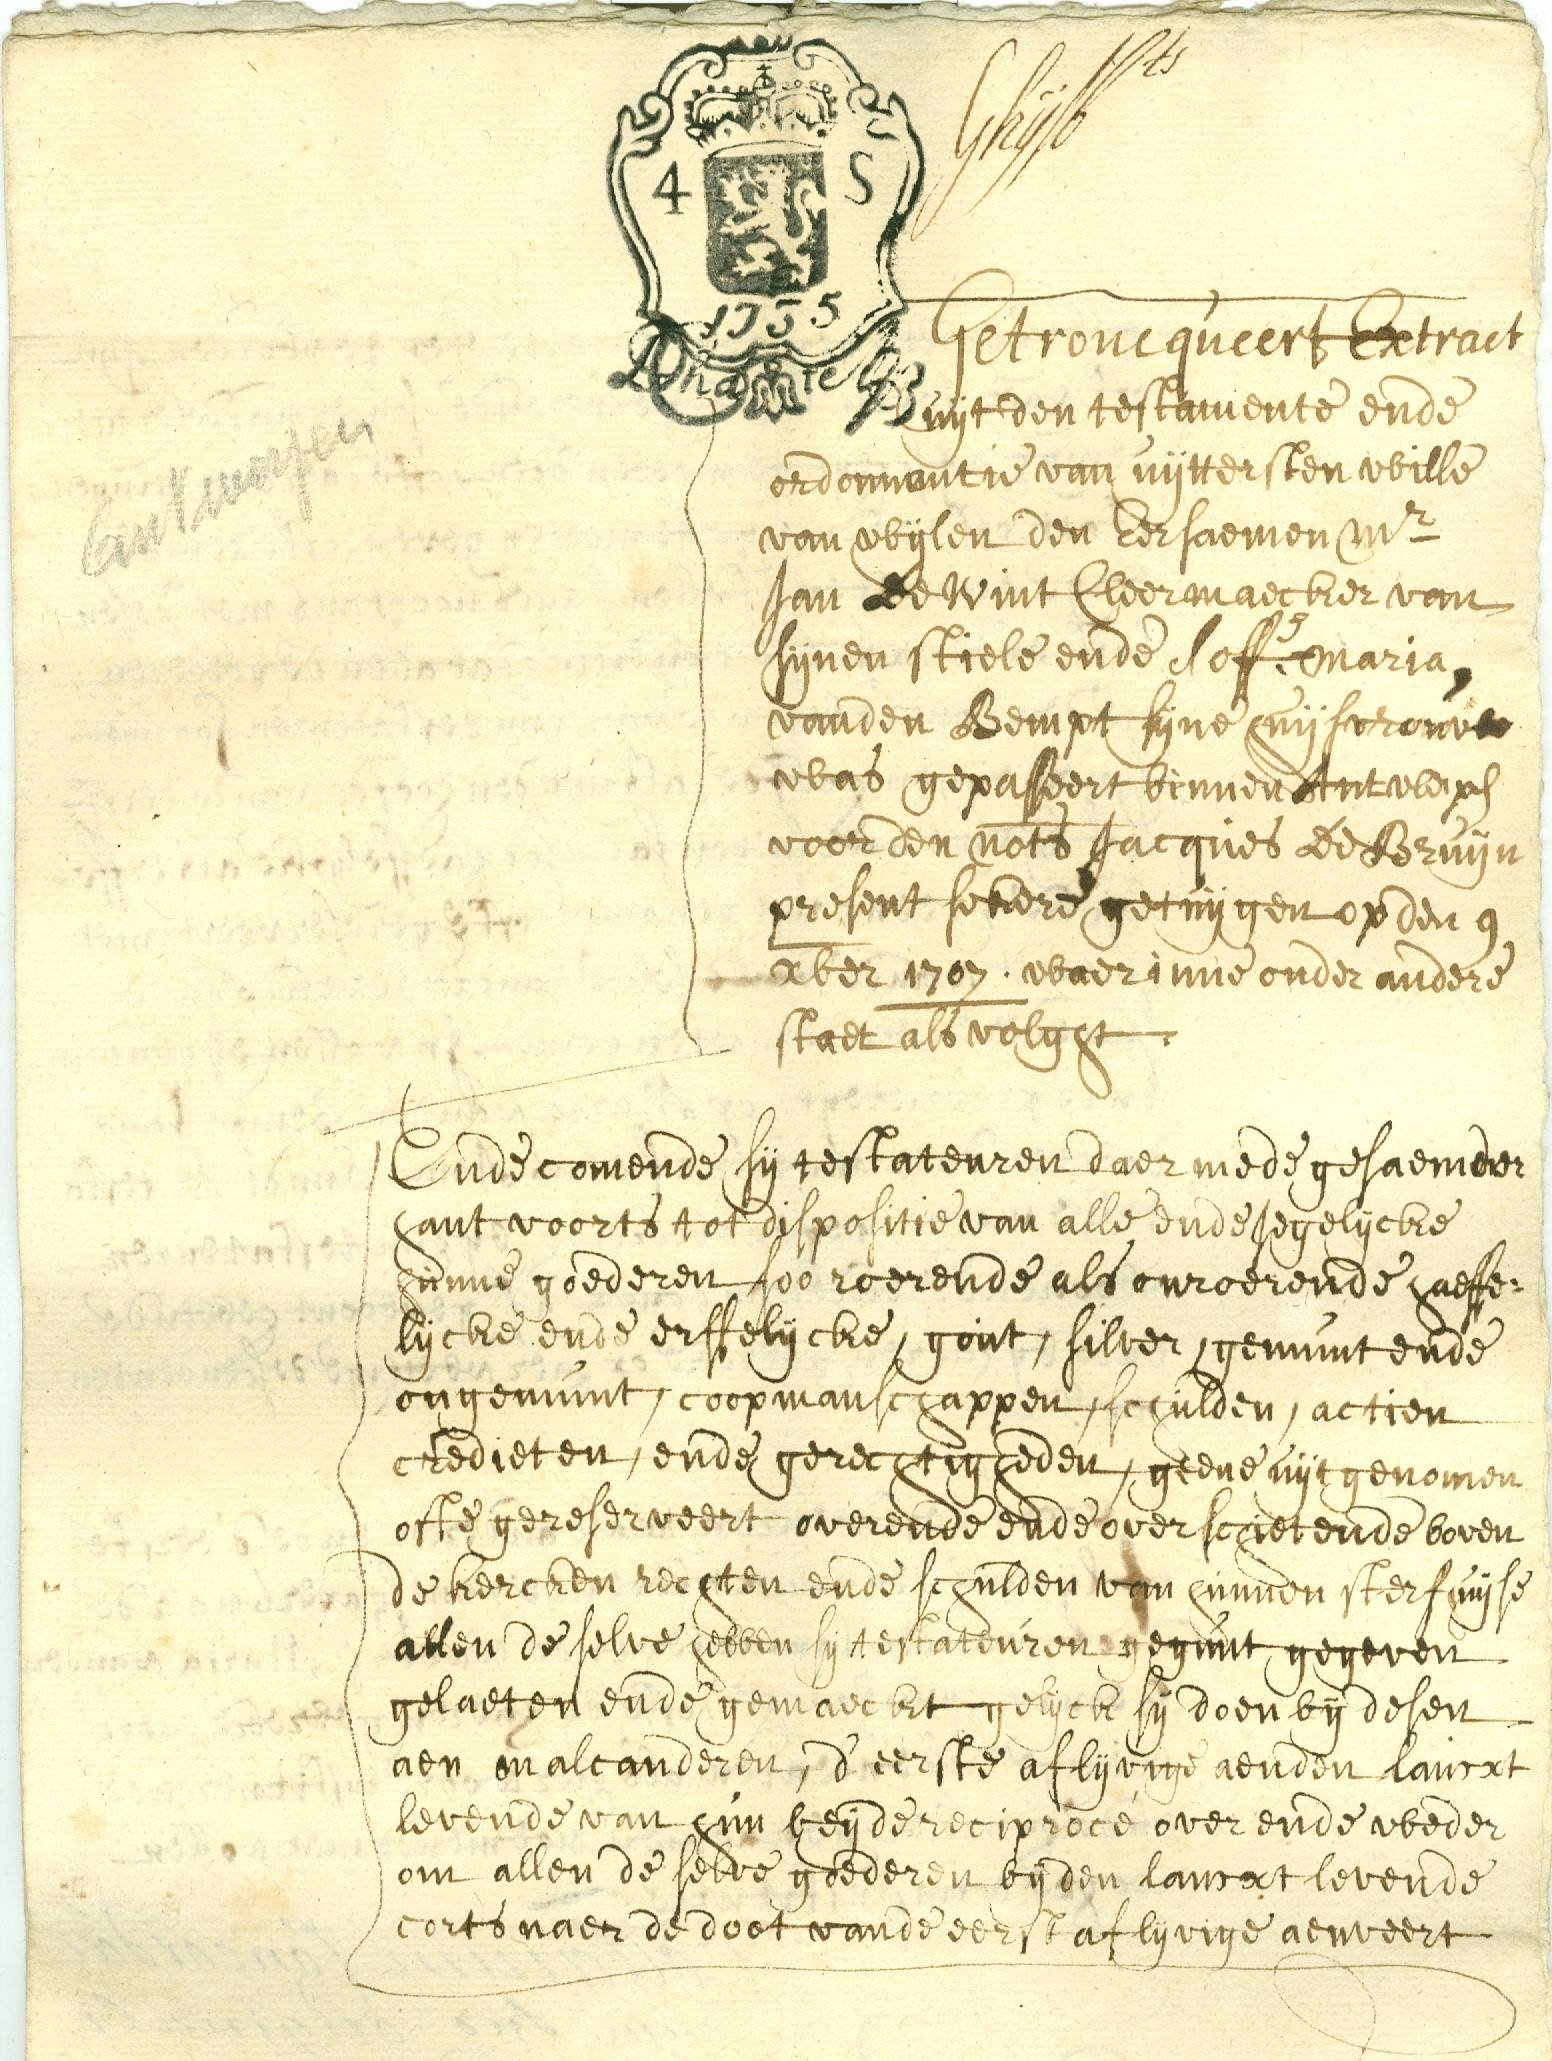 4 S
1755
Getroncqueert Extract
uijt den testamente ende
ordonnantie van uijttersten wille
van wijlen den eersaemen Mr
Jan De Wint Cleermaecker van
sijnen stiele ende Joffe Maria
vanden Bempt sijne huijsvrouwe
was gepasseert binnen Antwerpen
voor den nots Jacques De Bruijn
present sekere getuijgen op den 9
xber 1707. waer inne onder andere
staet als volght.
Ende comende sij testateuren daer mede gesaemder
hant voorts tot dispositie van alle ende iegelijcke
hunne goederen soo roerende als onroerende haeffe-
lijcke ende erffelijcke, gout, silver, gemunt ende
ongemunt, coopmanschappen, schulden, actien
credieten, ende gerechtigheden, geene uijtgenomen
ofte gereserveert overende ende overschietende boven
de kercken rechten ende schulden van hunnen sterfhuijse
allen de selve hebben sij testateuren gegunt gegeven
gelaeten ende gemaeckt gelijck sij doen bij desen
aen malcanderen, d'eerste aflijvige aenden lancxt
levende van hun beijde reciprocé over ende weder
om allen de selve goederen bij den lancxt levende
corts naer de doot vande eerst aflijvige aenveert